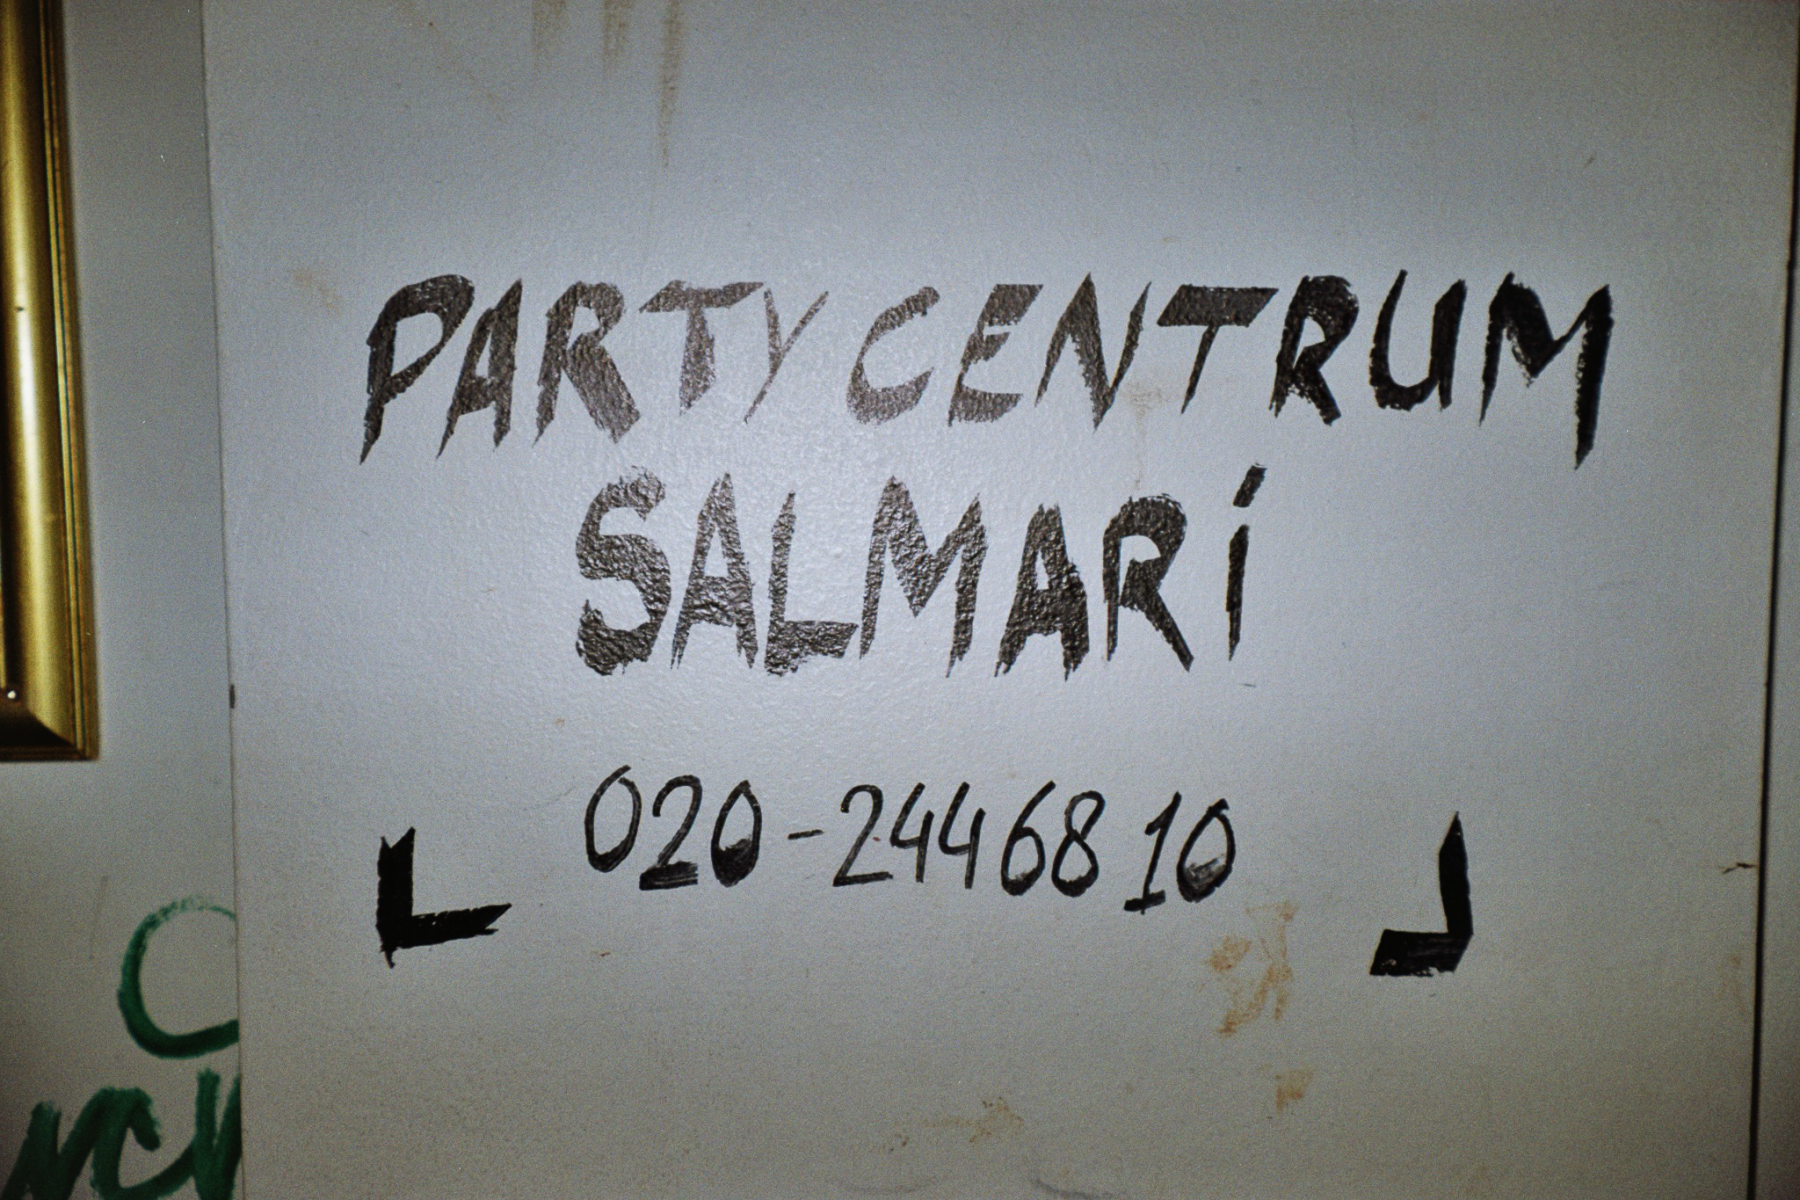 PARTY CENTRUM
SALMARİ
020-24468 10